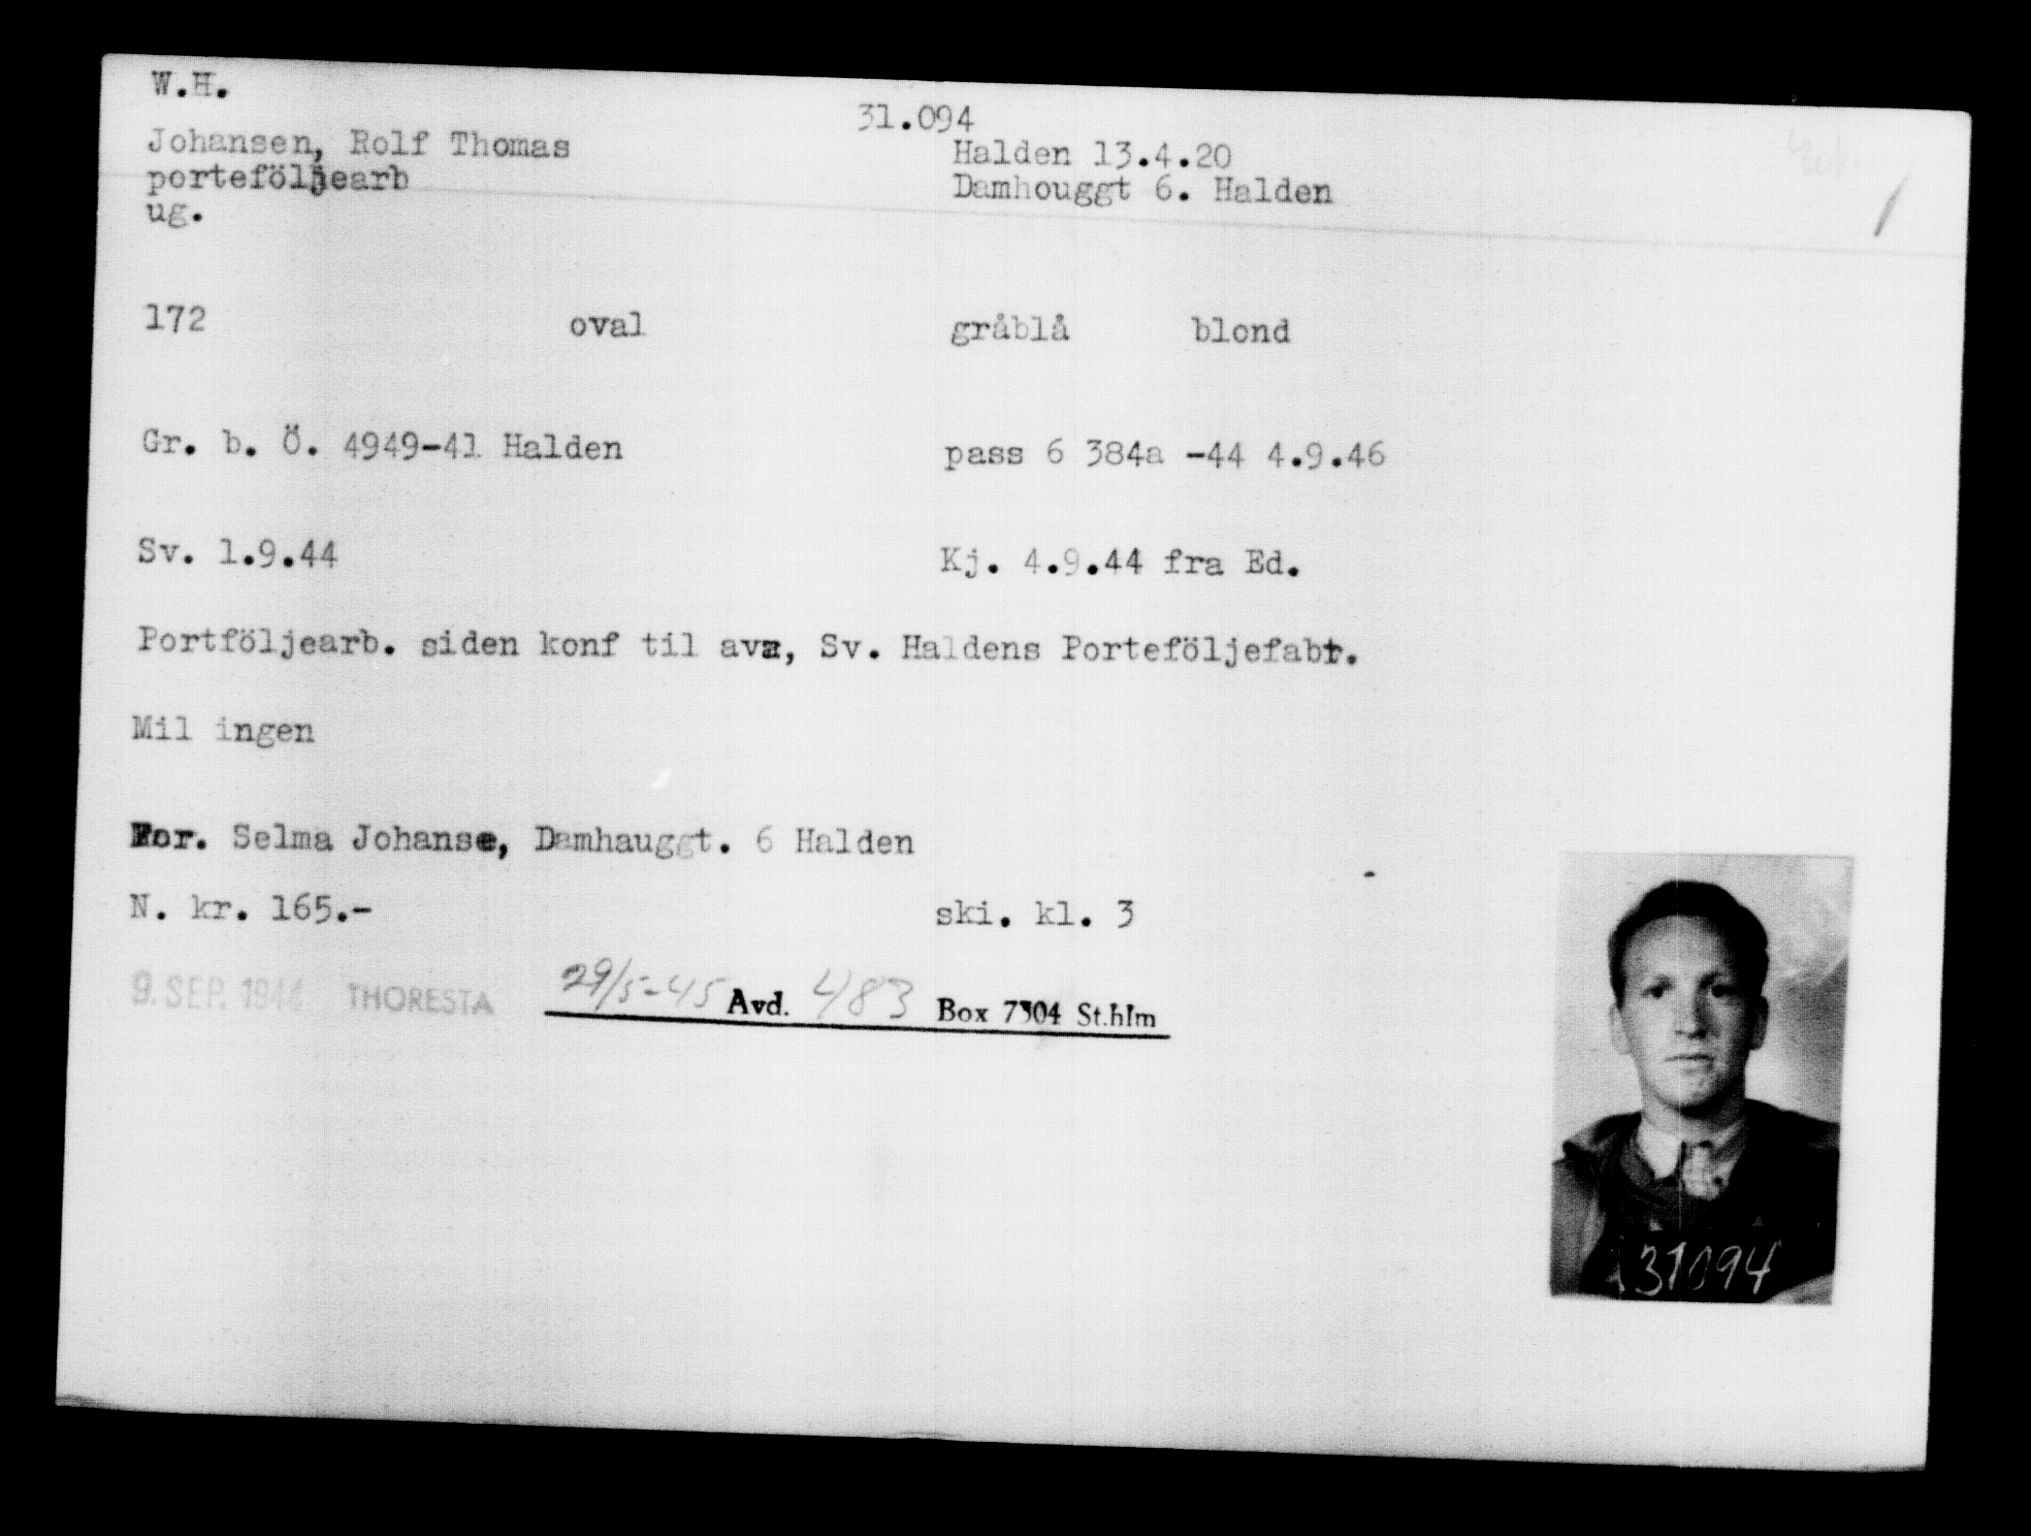 W.H.
31.094
Johansen, Rolf Thomas
Halden 13.4.20
porteföljearb
Damhouggt 6. Halden
ug.
172 oval gråblå blond
Gr. b. Ö. 4949-41 Halden
pass 6 384a -44 4.9.46
Sv. 1.9.44
Kj. 4.9.44 fra Ed.
Portföljearb. siden konf til ava, Sv. Haldens Porteföljefabr.
Mil ingen
For. Selma Johanse, Damhauggt. 6 Halden
N. kr. 165.-
ski. kl. 3
9. SEP. 1944 THORESTA
29/5-45 Avd. 483 Box 7304 St.hlm
31094